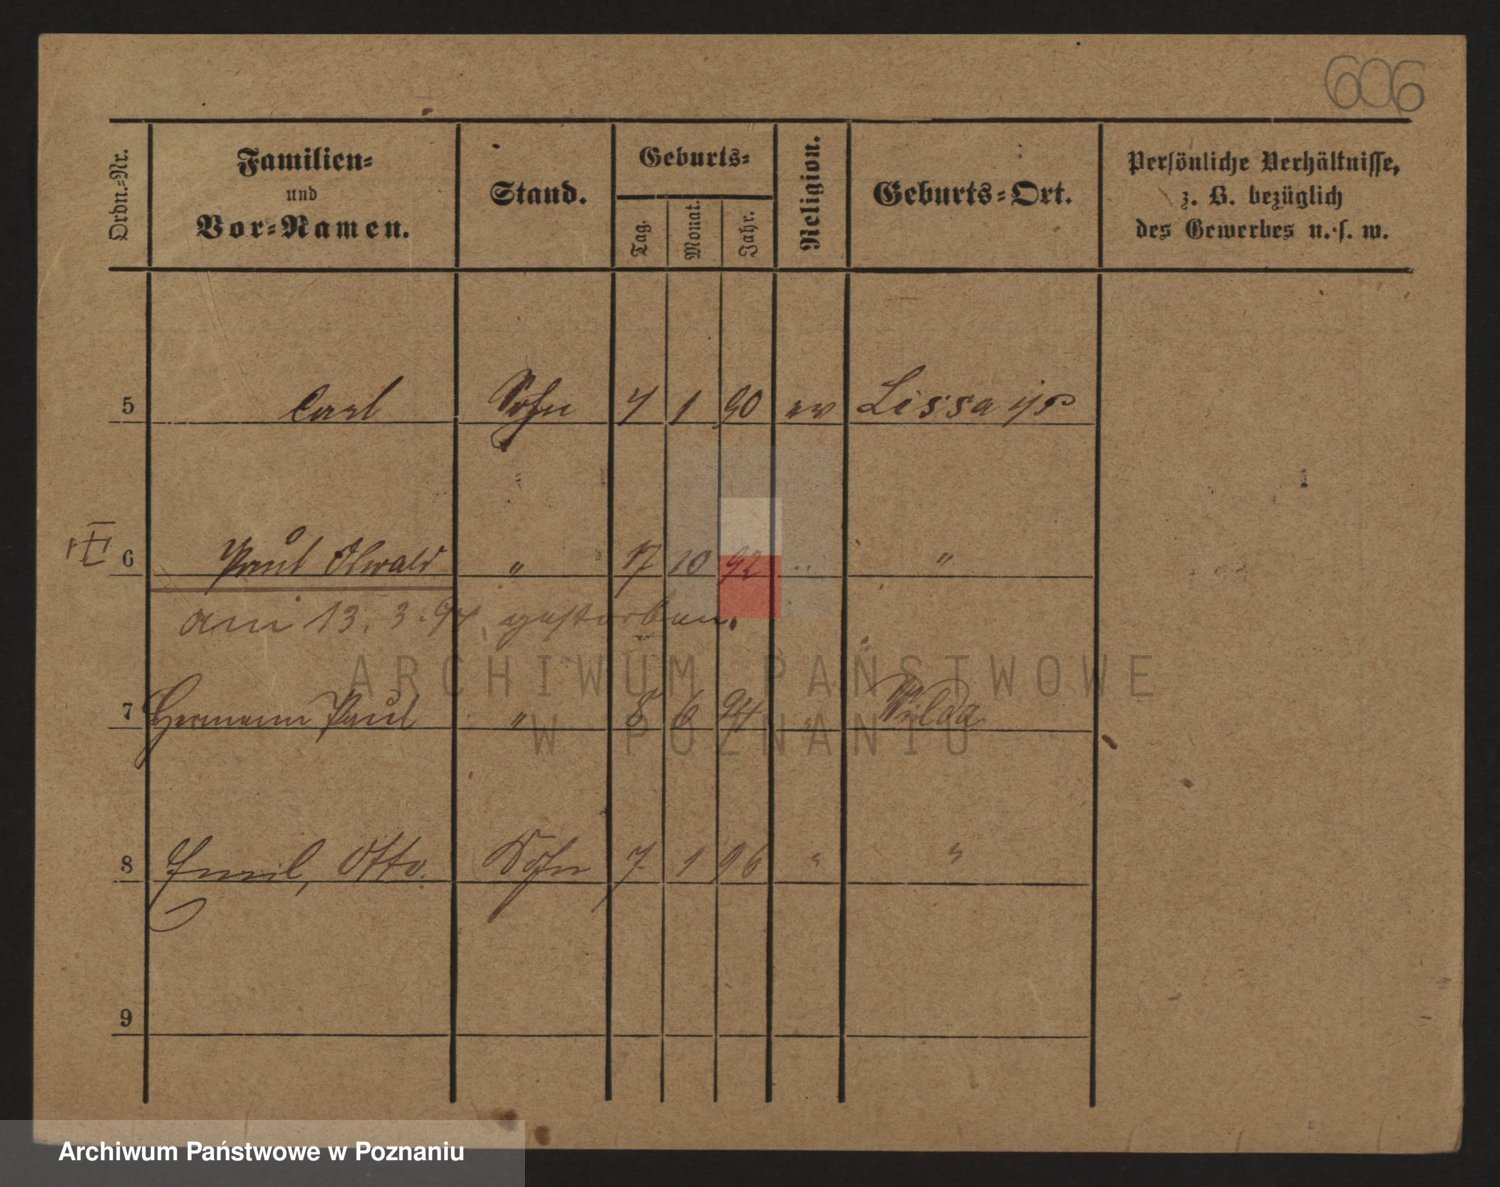 606
Ordn.-Nr.
Familien-
und
Vor-Namen.
Stand.
Geburts-
Tag.
Monat.
Jahr.
Religion.
Geburts-Ort.
Persönliche Verhältnisse,
z. B. bezüglich
des Gewerbes u. s. w.
5 Carl Sohn 7 1 90 ev Lissa i/P
6 Paul Oswald " 17 10 92 " "
am 13. 3. 94. gestorben.
7 Hermann Paul " 8 6 94 " Wilda
8 Emil, Otto. Sohn 7 1 96 " "
9
ARCHIWUM PAŃSTWOWE
W POZNANIU
Archiwum Państwowe w Poznaniu